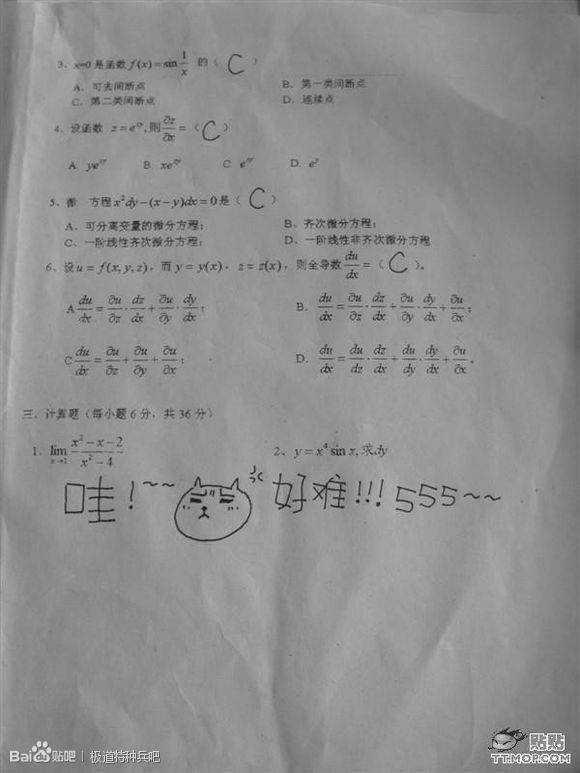 3、x=0 是函数 f(x)=sin 1/x 的（ C ）
A. 可去间断点 B. 第一类间断点
C. 第二类间断点 D. 连续点
4. 设函数 z=e^{xy}, 则 ∂z/∂x =（ C ）
A. ye^{xy} B. xe^{xy} C. e^{xy} D. e^y
5、微 方程 x²dy-(x-y)dx=0 是（ C ）
A、可分离变量的微分方程； B、齐次微分方程；
C、一阶线性齐次微分方程； D、一阶线性非齐次微分方程
6、设 u=f(x,y,z)，而 y=y(x)，z=z(x)，则全导数 du/dx =（ C ）。
A du/dx = ∂u/∂z · dz/dx + ∂u/∂y · dy/dx； B. du/dx = ∂u/∂z · dz/dx + ∂u/∂y · dy/dx + ∂u/∂x；
C du/dx = ∂u/∂z + ∂u/∂y + ∂u/∂x； D. du/dx = du/dz · dz/dx + du/dy · dy/dx + ∂u/∂x。
三、计算题（每小题 6 分，共 36 分）
1、lim x→2 (x²-x-2)/(x²-4) 2、y=x⁴ sin x, 求dy
哇！~~ 好难!!! 555~~
Bai 贴吧 | 极道特种兵吧
贴贴
TT.MOP.COM